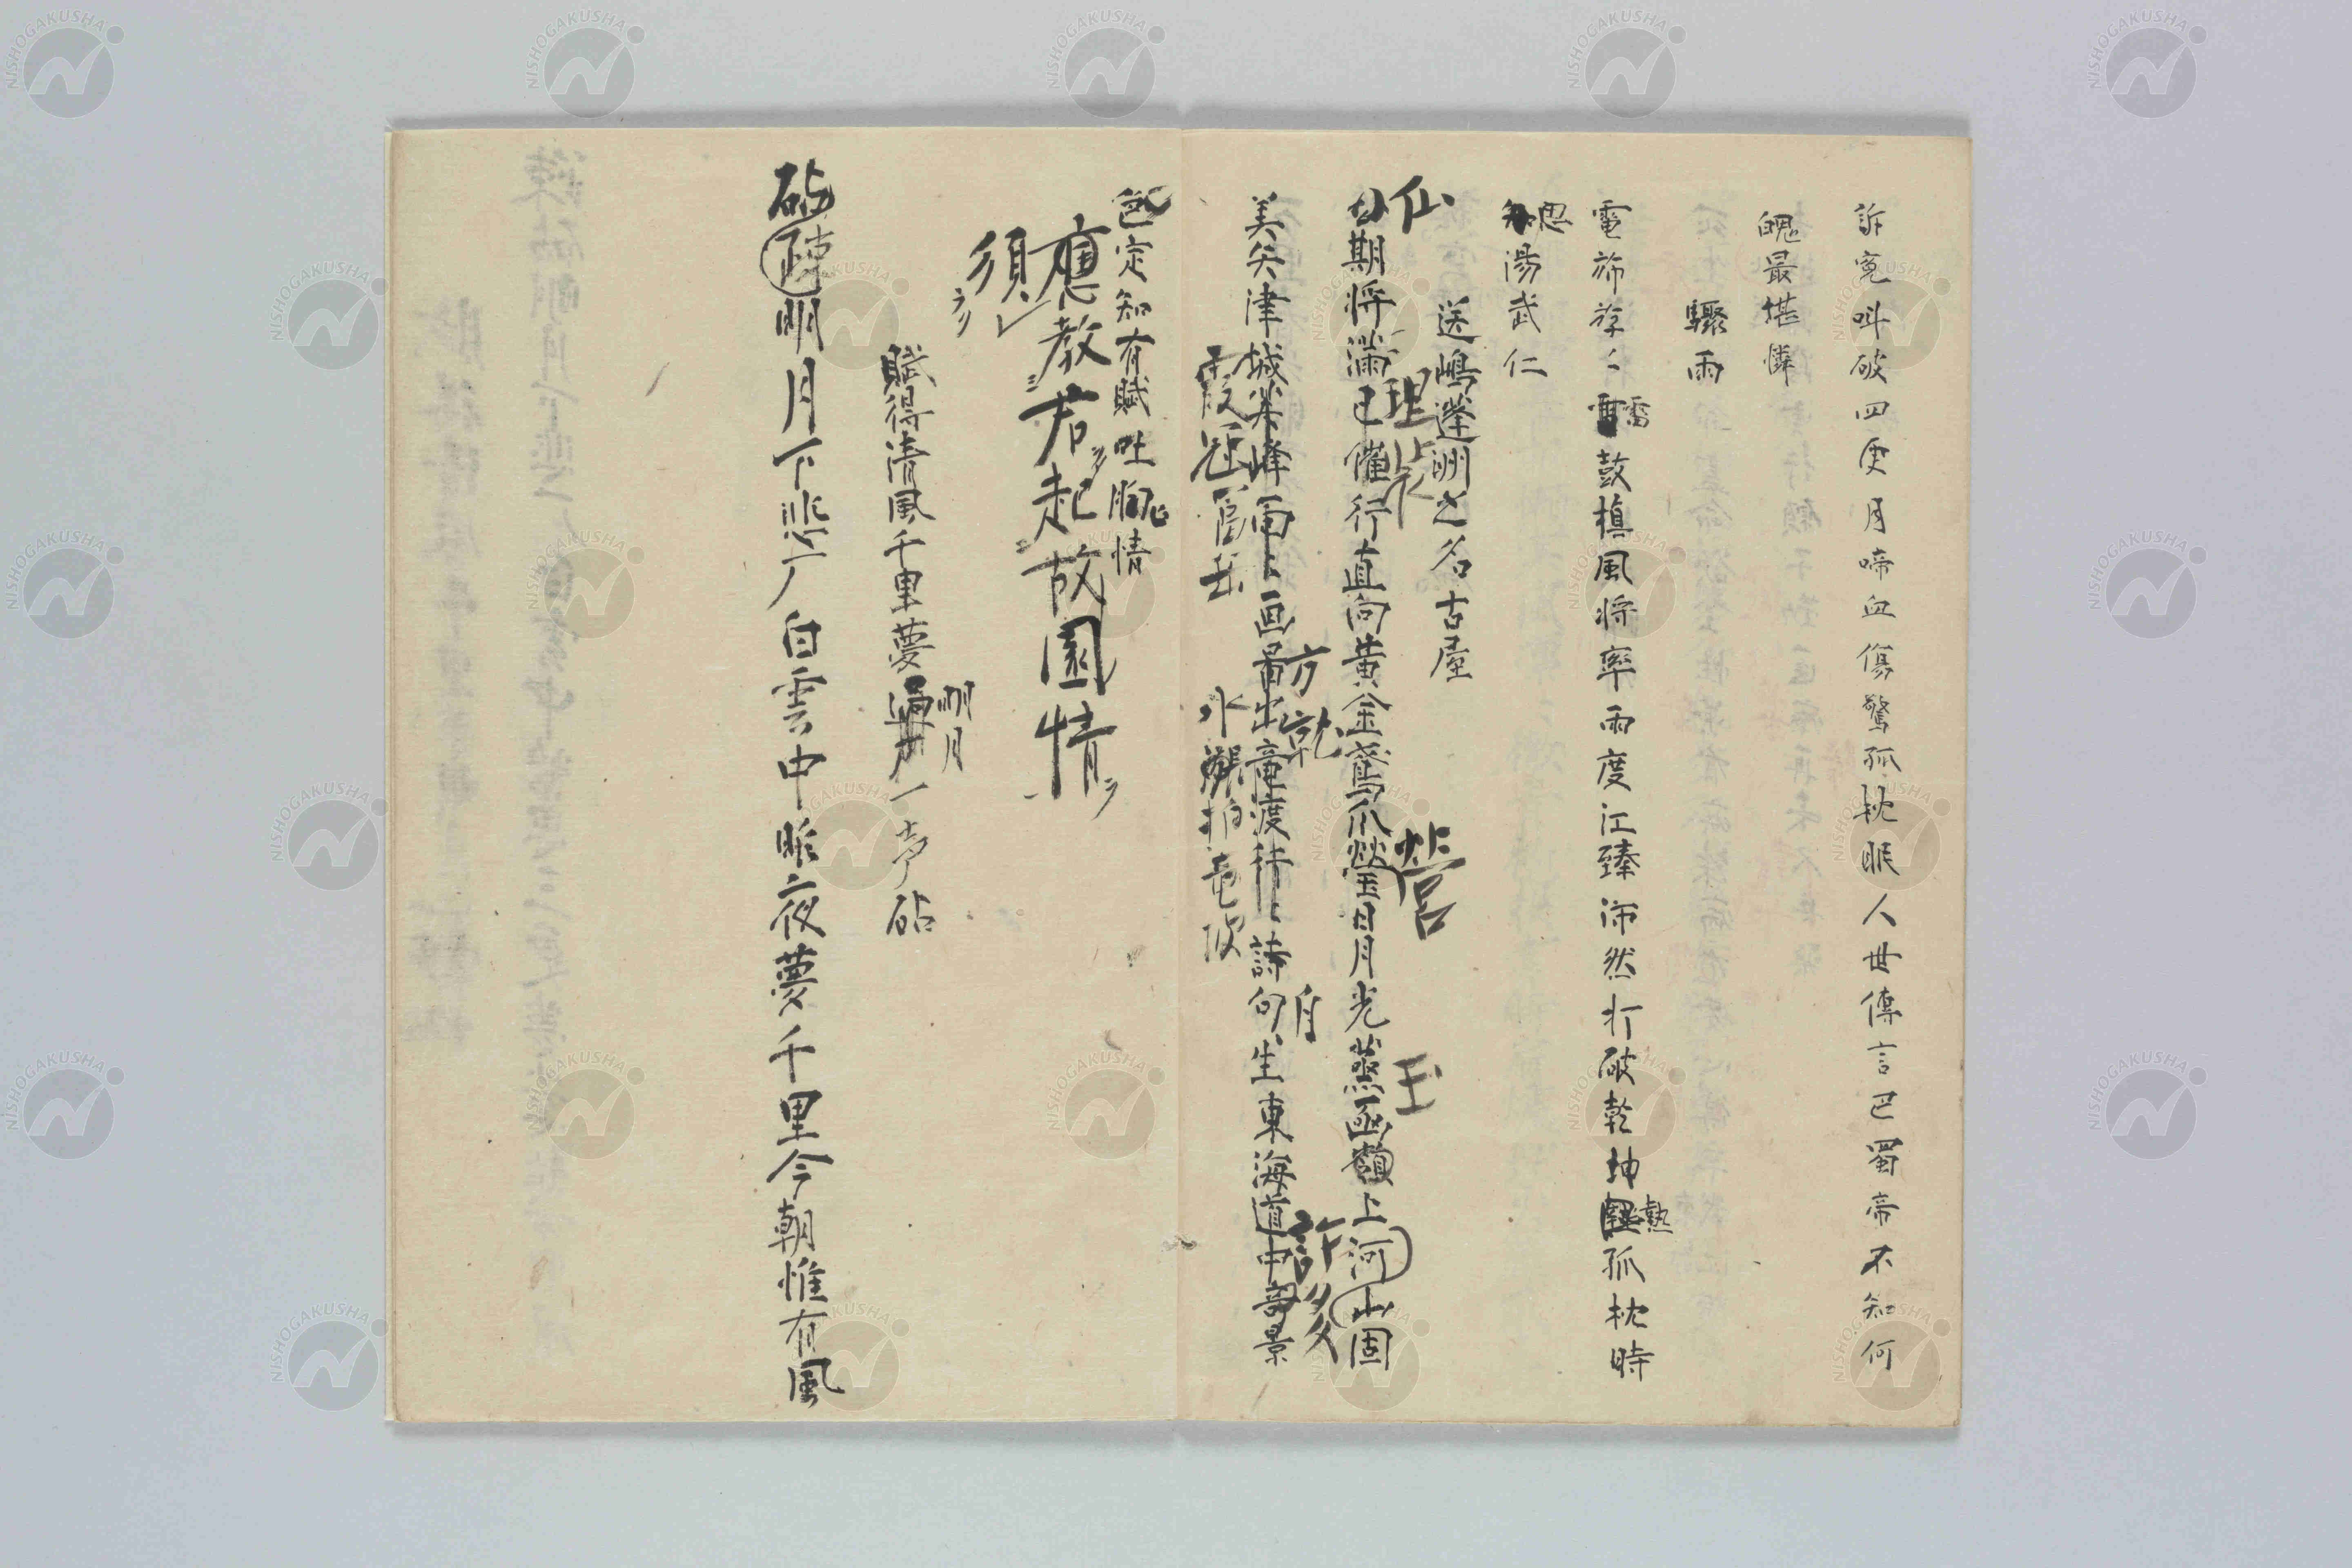 訴寃叫破四更月啼血傷驚孤枕眠人世傳言巴蜀帝不知何
魄最堪憐
驟雨
電旆旌々雷鼓填風将率雨度江臻沛然打破乾坤熱孤枕時
思湯武仁
送嶋蓬洲之名古屋
仙期将満已催行直向黄金鳶爪瑩日月光蒸函嶺上河山固
仙 理 営 玉
美矣津城米峰面々画啚出竜渡待々詩句生東海道中奇景
方就 自 許多
霞 冨岳 氷 拍竜波
色定知有賦吐胸情
應教君起故園情
須
賦得清風千里夢明月一声砧
砧疎明月下悲 白雲中昨夜夢千里今朝惟有風
NISHOGAKUSHA